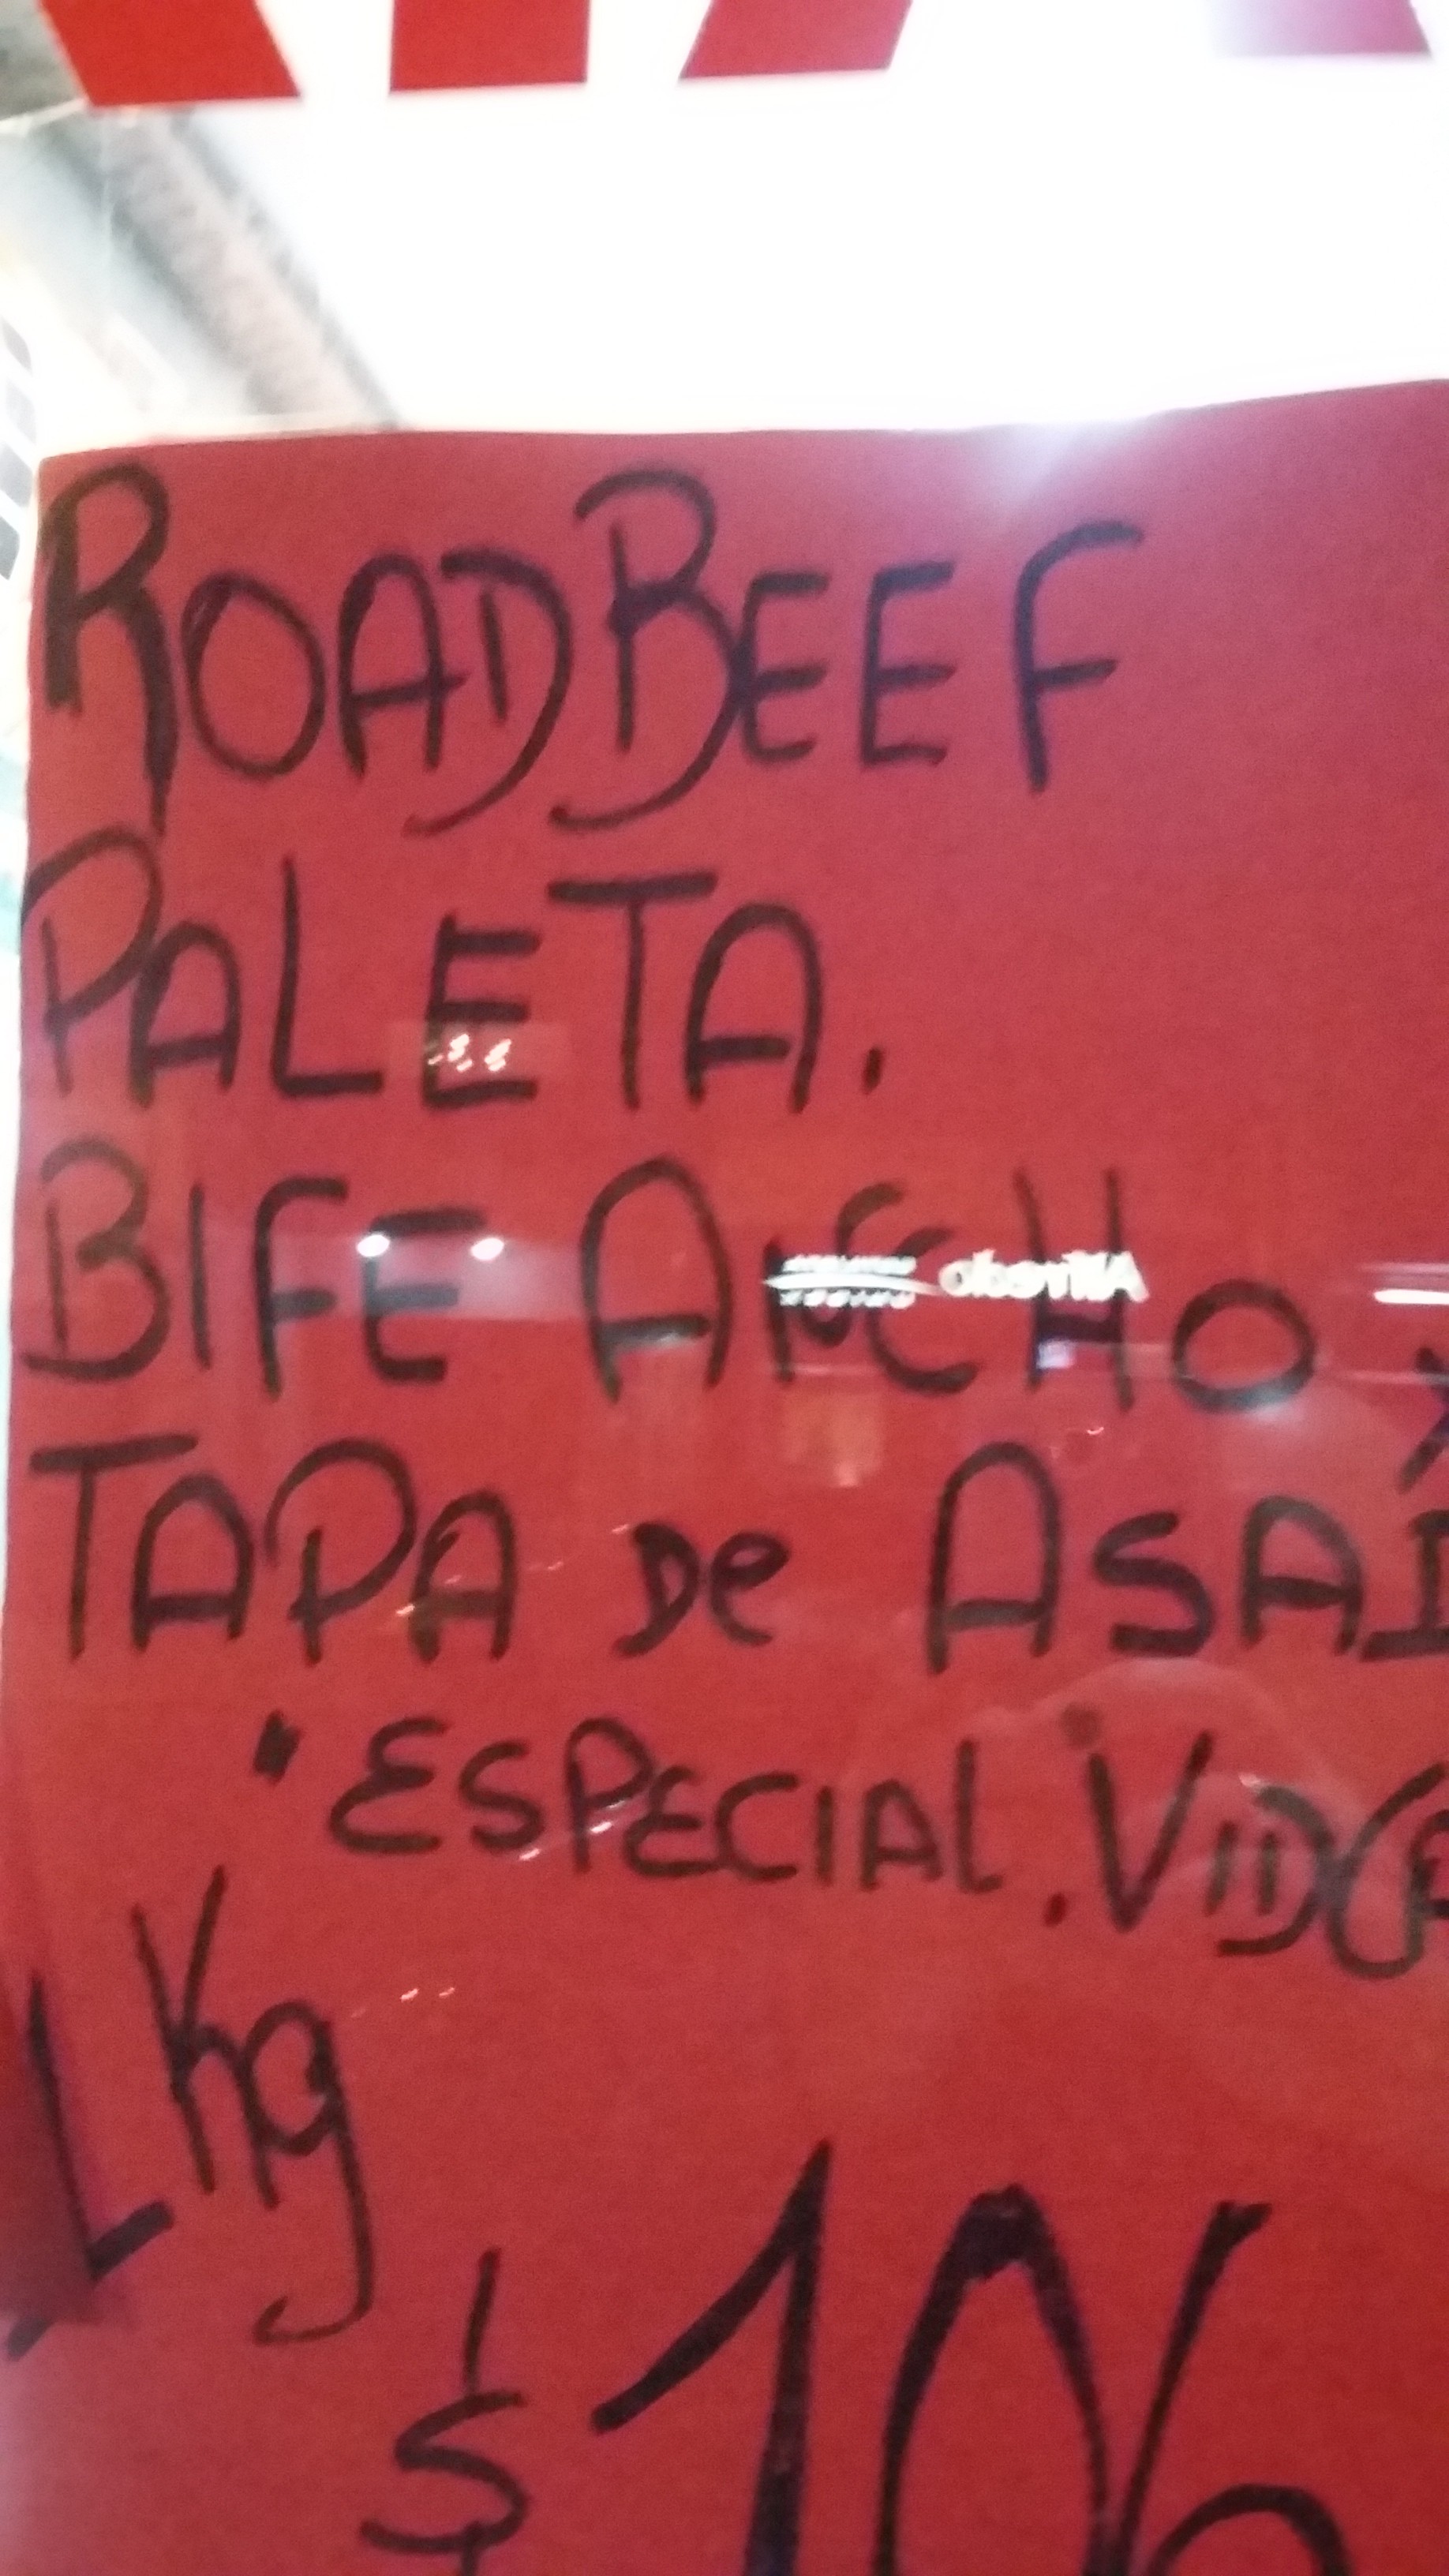 ROADBEEF
PALETA.
BIFE ANCHO
TAPA De ASAD
• ESPECIAL.
1 Kg
$ 106